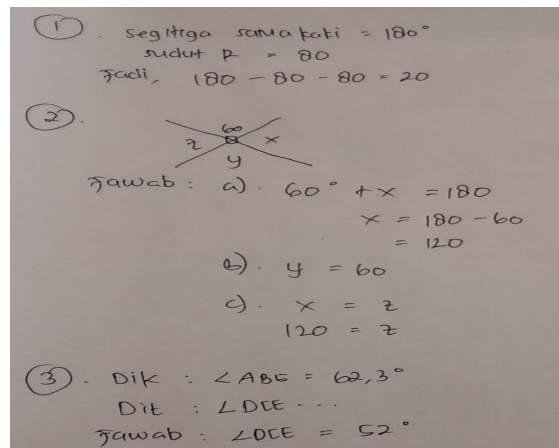 1. Segitiga sama kaki = 180°
sudut R = 80
Jadi, 180 - 80 - 80 = 20
2.
60
z x
y
Jawab : a). 60° + x = 180
x = 180 - 60
= 120
b). y = 60
c). x = z
120 = z
3. Dik : ∠ABE = 62,3°
Dit : ∠DCE ...
Jawab : ∠DCE = 52°